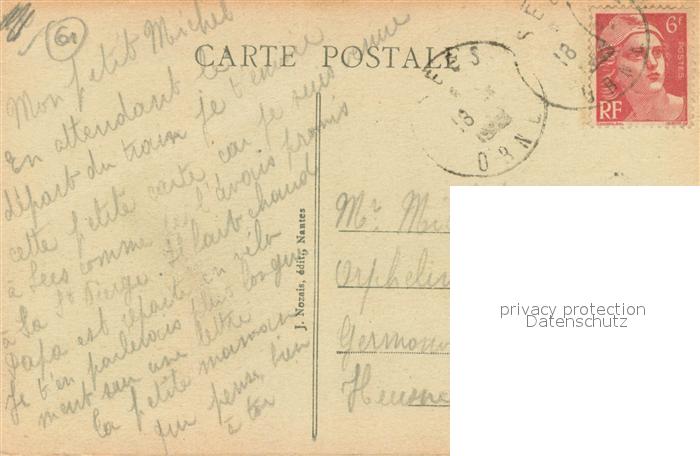 61
CARTE POSTALE
Mon petit Michel
En attendant le
départ du train je t'envoie
cette petite carte car je suis venue
à Sees comme je l'avais promis
à la Ste Vierge. Il fait chaud
Papa est reparti en vélo
Je t'en parlerai plus longue
ment sur une lettre
ta petite maman
qui pense bien
à toi
J. Nozais, édit., Nantes
SEES
18
ORNE
SEES
18
ORNE
6f
POSTES
RF
Mr
Orphelin
privacy protection
Datenschutz